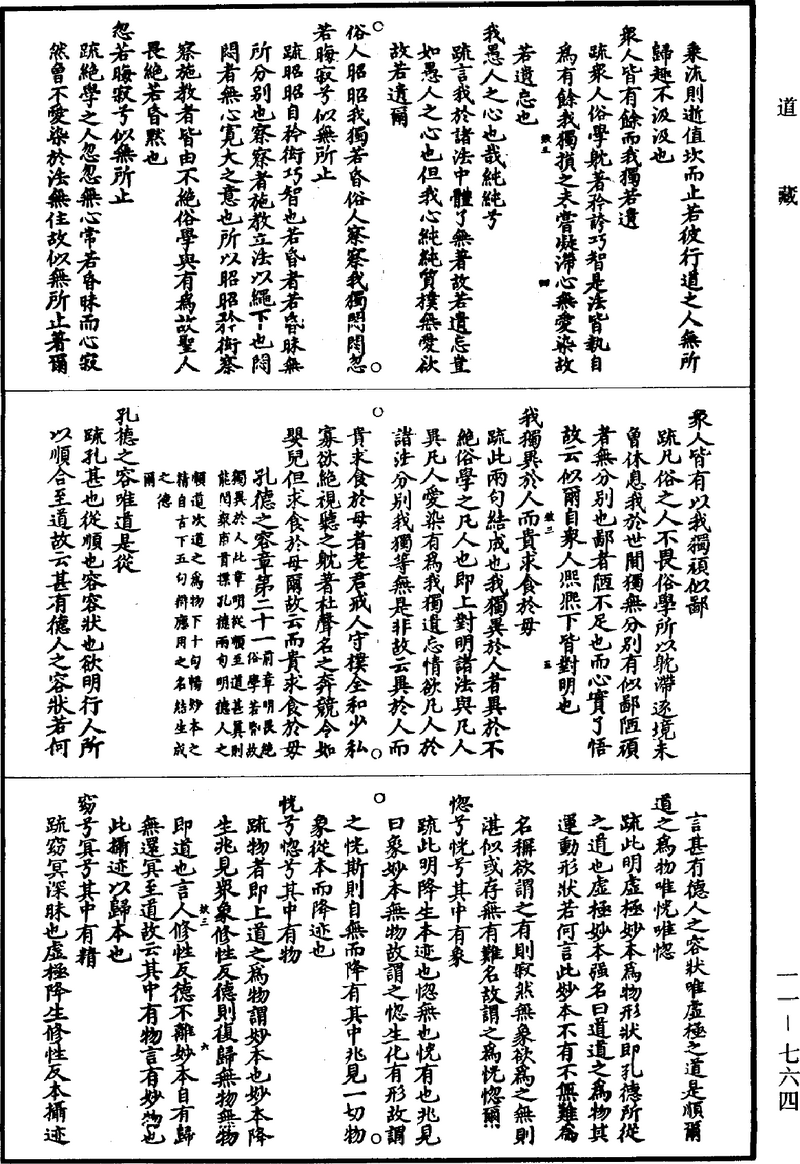 道藏
乘流則逝值坎而止若彼行道之人無所
歸趣不汲汲也
衆人皆有餘而我獨若遺
疏衆人俗學躭著矜誇巧智是法皆執自
爲有餘我獨損之未嘗凝滯心無愛染故
若遺忘也
我愚人之心也哉純純兮
疏言我於諸法中體了無著故若遺忘豈
如愚人之心也但我心純純質樸無愛欲
故若遺爾
俗人昭昭我獨若昏俗人察察我獨悶悶忽
若晦寂兮似無所止
疏昭昭自矜衒巧智也若昏者若昏昧無
所分別也察察者施教立法以繩下也悶
悶者無心寬大之意也所以昭昭矜衒察
察施教者皆由不絕俗學與有爲故聖人
畏絕若昏默也
忽若晦寂兮似無所止
疏絕學之人忽忽無心常若昏昧而心寂
然曾不愛染於法無住故似無所止著爾
衆人皆有以我獨頑似鄙
疏凡俗之人不畏俗學所以躭滯逐境未
曾休息我於世間獨無分別有似鄙陋頑
者無分別也鄙者陋不足也而心實了悟
故云似爾自衆人熈熈下皆對明也
我獨異於人而貴求食於母
疏此兩句結成也我獨異於人者異於不
絕俗學之凡人也即上對明諸法與凡人
異凡人愛染有爲我獨遺忘情欲凡人於
諸法分別我獨等無是非故云異於人而
貴求食於母者老君戒人守樸全和少私
寡欲絕視聽之躭著杜聲名之奔競令如
嬰兒但求食於母爾故云而貴求食於母
孔德之容章第二十一前章明畏絕俗學若昏故
獨異於人此章明從順至道甚眞則能閱衆甫首標孔德兩句明德人之
順道次道之爲物下十句暢妙本之精自古下五句辯應用之名結生成
之德爾
孔德之容唯道是從
疏孔甚也從順也容容狀也欲明行人所
以順合至道故云甚有德人之容狀若何
言甚有德人之容狀唯虛極之道是順爾
道之爲物唯恍唯惚
疏此明虛極妙本爲物形狀即孔德所從
之道也虛極妙本強名曰道道之爲物其
運動形狀若何言此妙本不有不無難爲
名稱欲謂之有則寂然無象欲爲之無則
湛似或存無有難名故謂之爲恍惚爾
惚兮恍兮其中有象
疏此明降生本迹也惚無也恍有也兆見
曰象妙本無物故謂之惚生化有形故謂
之恍斯則自無而降有其中兆見一切物
象從本而降迹也
恍兮惚兮其中有物
疏物者即上道之爲物謂妙本也妙本降
生兆見衆象修性反德則復歸無物無物
即道也言人修性反德不離妙本自有歸
無還冥至道故云其中有物言有妙物也
此攝迹以歸本也
窈兮冥兮其中有精
疏窈冥深昧也虛極降生修性反本攝迹
一一—七六四